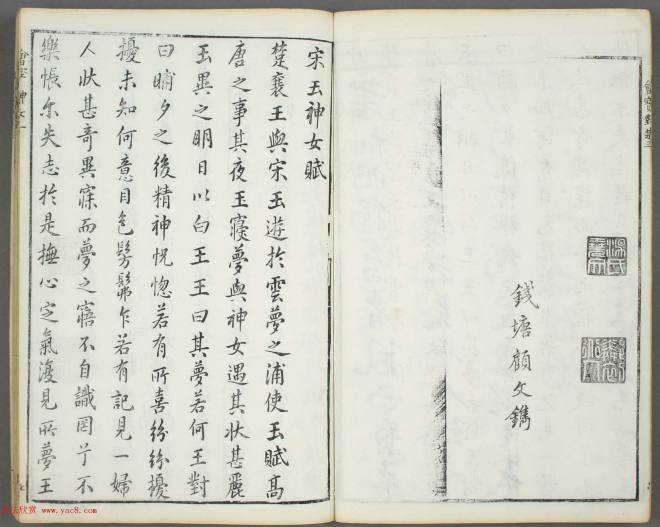 錢塘顧文鐫
宋玉神女賦
楚襄王與宋玉遊於雲夢之浦使玉賦高
唐之事其夜王寢夢與神女遇其狀甚麗
王異之明日以白玉玉曰其夢若何王對
曰晡夕之後精神怳惚若有所喜紛紛擾
擾未知何意目色髣髴乍若有記見一婦
人狀甚奇異寐而夢之寤不自識罔兮不
樂悵尔失志於是撫心定氣復見所夢王
www.yac8.com